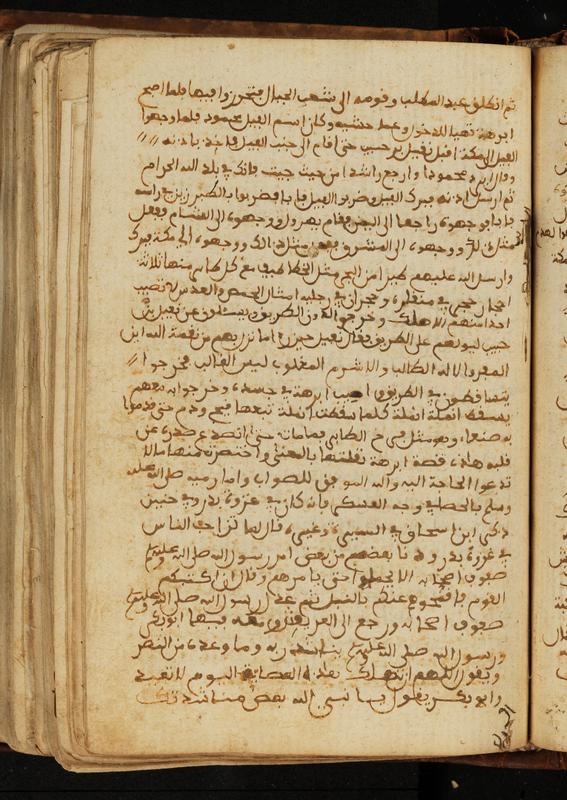 ثم انطلق عبد المطلب وقومه الى شعب الجبال فتحرزوا فيها فلما اصبح
ابرهة تهيا للدخول وعبا جيشه وكان اسم الفيل محمود فلما وجهوا
الفيل الى مكة اقبل نفيل بن حبيب حتى اقام الى جنب الفيل فاخذ باذنه
وقال ابرك محمود او ارجع راشدا من حيث جيت فانك في بلد الله الحرام
ثم ارسل اذنه فبرك الفيل وضربوا الفيل فابا فضربوا بالطبرزين في راسه
فابا فوجهوه راجعا الى اليمن فقام يهرول ووجهوه الى الشام ففعل
مثل ذلك ووجهوه الى المشرق ففعل مثل ذلك ووجهوه الى مكة فبرك
وارسل الله عليهم طيرا من البحر مثل الخطاطيف مع كل طاير منها ثلاثة
احجار حجر في منقاره وحجران في رجليه امثال الحمص والعدس لا تصيب
احدا منهم الا هلك وخرجوا هاربين الطريق يسئلون عن نفيل بن
حبيب ليدلهم على الطريق فقال نفيل حين را ما نزل بهم من نقمة الله اين
المفر والاله الطالب والاشرم المغلوب ليس الغالب فخرجوا
يتساقطون في الطريق واصيب ابرهة في جسده وخرجوا به معهم
يسقط انملة انملة كلما سقطت انملة تبعها قيح ودم حتى قدموا
به صنعا وهو مثل فرخ الطاير فما مات حتى انصدع صدره عن
قلبه هذه قصة ابرهة نقلتها بالمعنى واختصرت منها ما لا
تدعوا الحاجة اليه والله الموفق للصواب واما رميه صلى الله عليه
وسلم بالحصا في وجه العسكر فانه كان في غزوة بدر وفي حنين
ذكر ابن اسحاق في السير وغيره قال لما تزاحف الناس
في غزوة بدر ودنا بعضهم من بعض امر رسول الله صلى الله عليه وسلم
صفوف اصحابه الا يحملوا حتى يامرهم وقال ان اكتنفكم
القوم فانضحوهم عنكم بالنبل ثم عدل رسول الله صلى الله عليه وسلم
صفوف اصحابه ورجع الى العريش ومعه فيها ابو بكر
ورسول الله صلى الله عليه وسلم يناشد ربه وما وعده من النصر
ويقول اللهم ان تهلك هذه العصابة اليوم لا تعبد
وابو بكر يقول يا نبي الله بعض مناشدتك